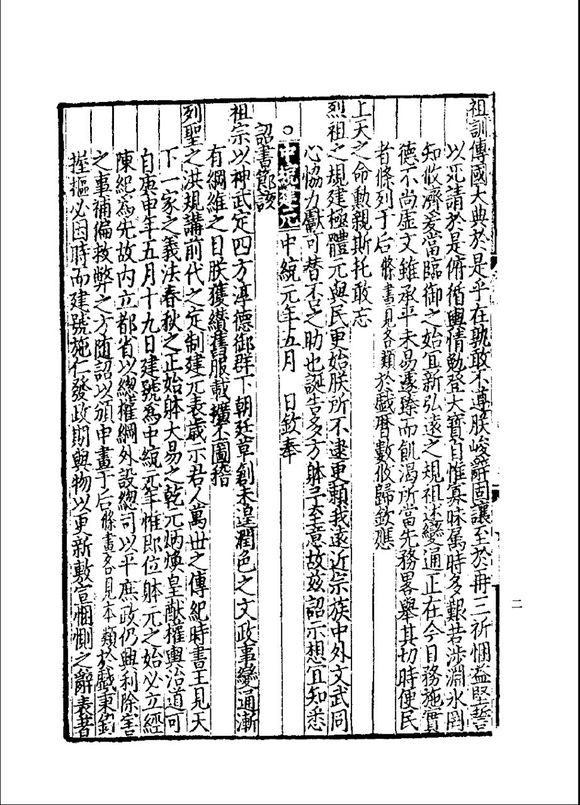 祖訓傳國大典於是乎在孰敢不遵朕峻辭固讓至於再三祈懇益堅誓
以死請於是俯循輿情勉登大寶自惟寡昧屬時多艱若涉淵氷罔
知攸濟爰當臨御之始宜新弘遠之規祖述變通正在今日務施實
德不尚虛文雖承平未易遽臻而飢渴所當先務畧舉其切時便民
者條列于后條畫見各類於戲曆數攸歸欽應
上天之命勳親斯托敢忘
烈祖之規建極體元與民更始朕所不逮更賴我遠近宗族中外文武同
心恊力獻可替否之助也誕告多方躰予至意故玆詔示想宜知悉
○中統建元中統元年五月 日欽奉
詔書節該
祖宗以神武定四方淳德御群下朝廷草創未遑潤色之文政事變通漸
有綱維之目朕獲纘舊服載擴丕圖稽
列聖之洪規講前代之定制建元表歲示君人萬世之傳紀時書王見天
下一家之義法春秋之正始躰大易之乾元炳煥皇猷權輿治道可
自庚申年五月十九日建號為中統元年惟即位躰元之始必立經
陳紀為先故内立都省以緫權綱外設緫司以平庶政仍興利除害
之事補偏救弊之方隨詔以頒申畫于后條畫各見本類於戲秉籙
握樞必因時而建號施仁發政期與物以更新敷宣惻之辭表著
二